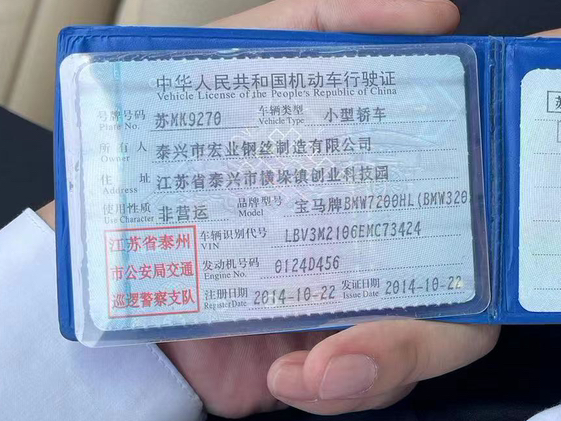 中华人民共和国机动车行驶证
Vehicle License of the People's Republic of China
号牌号码 Plate No. 苏MK9270 车辆类型 Vehicle Type 小型轿车
所有人 Owner 泰兴市宏业钢丝制造有限公司
住址 Address 江苏省泰兴市横垛镇创业科技园
使用性质 Use Character 非营运 品牌型号 Model 宝马牌BMW7200HL(BMW320
车辆识别代号 VIN LBV3M2106EMC73424
发动机号码 Engine No. 0124D456
注册日期 Register Date 2014-10-22 发证日期 Issue Date 2014-10-22
江苏省泰州
市公安局交通
巡逻警察支队
苏